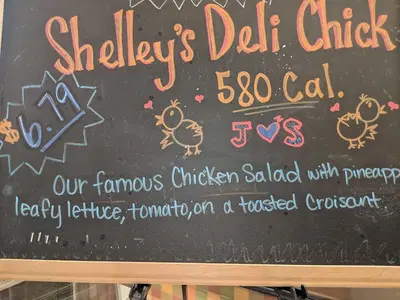 Shelley's Deli Chick
580 Cal.
$6.79
J S
Our famous Chicken Salad with pineapp
leafy lettuce, tomato, on a toasted Croissant